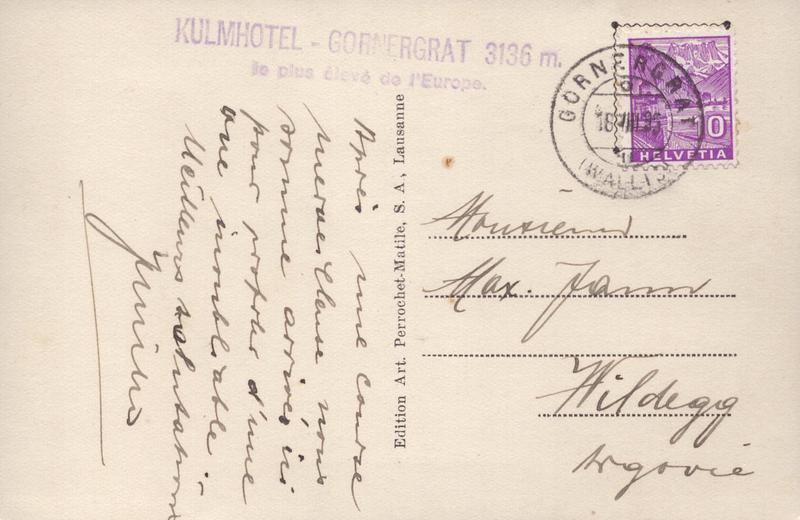 KULMHOTEL - GORNERGRAT 3136 m.
le plus élevé de l'Europe.
GORNERGRAT
(WALLIS)
10
HELVETIA
Après une course
merveilleuse nous
sommes arrivés ici
pour profiter d'une
vue inoubliable
Meilleurs salutations
Edition Art. Perrochet-Matile, S. A., Lausanne
Monsieur
Max.
Wildegg
Argovie